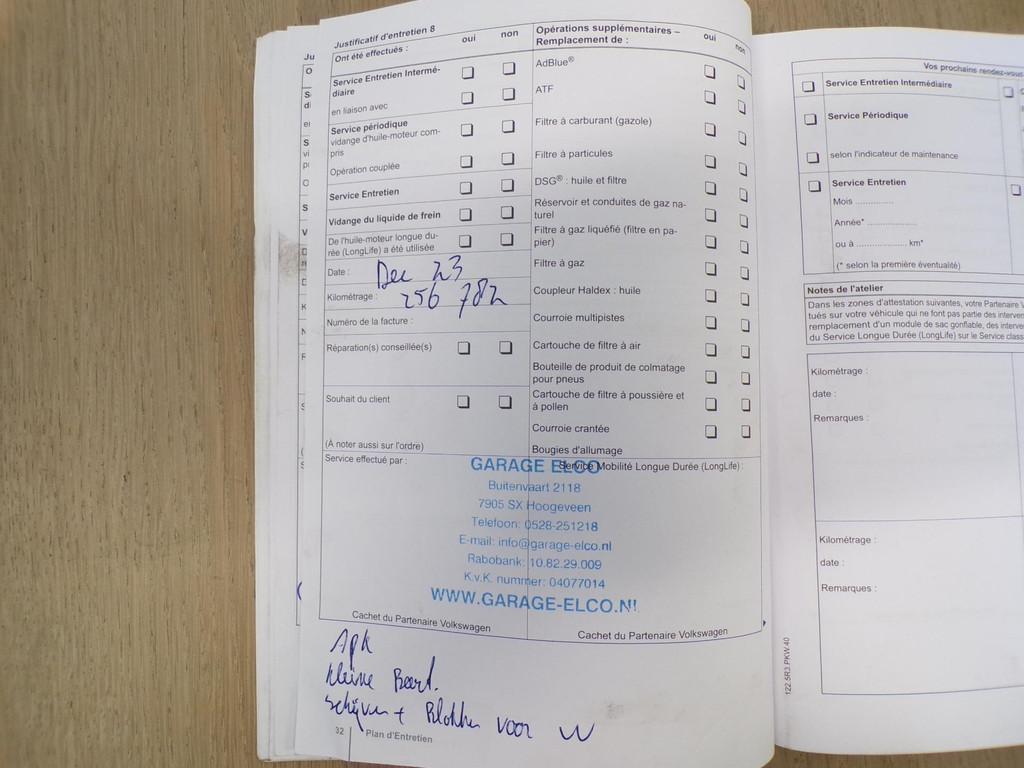 Justificatif d'entretien 8
Ont été effectués :
oui non
Service Entretien Intermé-
diaire
en liaison avec
Service périodique
vidange d'huile-moteur com-
pris
Opération couplée
Service Entretien
Vidange du liquide de frein
De l'huile-moteur longue du-
rée (LongLife) a été utilisée
Date : Dec 23
Kilométrage : 256 782
Numéro de la facture :
Réparation(s) conseillée(s)
Souhait du client
(À noter aussi sur l'ordre)
Service effectué par :
Opérations supplémentaires –
Remplacement de :
oui non
AdBlue®
ATF
Filtre à carburant (gazole)
Filtre à particules
DSG® : huile et filtre
Réservoir et conduites de gaz na-
turel
Filtre à gaz liquéfié (filtre en pa-
pier)
Filtre à gaz
Coupleur Haldex : huile
Courroie multipistes
Cartouche de filtre à air
Bouteille de produit de colmatage
pour pneus
Cartouche de filtre à poussière et
à pollen
Courroie crantée
Bougies d'allumage
Service Mobilité Longue Durée (LongLife) :
GARAGE ELCO
Buitenvaart 2118
7905 SX Hoogeveen
Telefoon: 0528-251218
E-mail: info@garage-elco.nl
Rabobank: 10.82.29.009
K.v.K. nummer: 04077014
WWW.GARAGE-ELCO.NL
Cachet du Partenaire Volkswagen
Cachet du Partenaire Volkswagen
Apk
kleine Beurt.
Schijven + Blokken voor
32 Plan d'Entretien
Vos prochains rendez-vous
Service Entretien Intermédiaire
Service Périodique
selon l'indicateur de maintenance
Service Entretien
Mois ..............
Année* ..................
ou à .................. km*
(* selon la première éventualité)
Notes de l'atelier
Dans les zones d'attestation suivantes, votre Partenaire
tués sur votre véhicule qui ne font pas partie des
remplacement d'un module de sac gonflable, des
du Service Longue Durée (LongLife) sur le Service
Kilométrage :
date :
Remarques :
Kilométrage :
date :
Remarques :
122.5R3.PKW.40